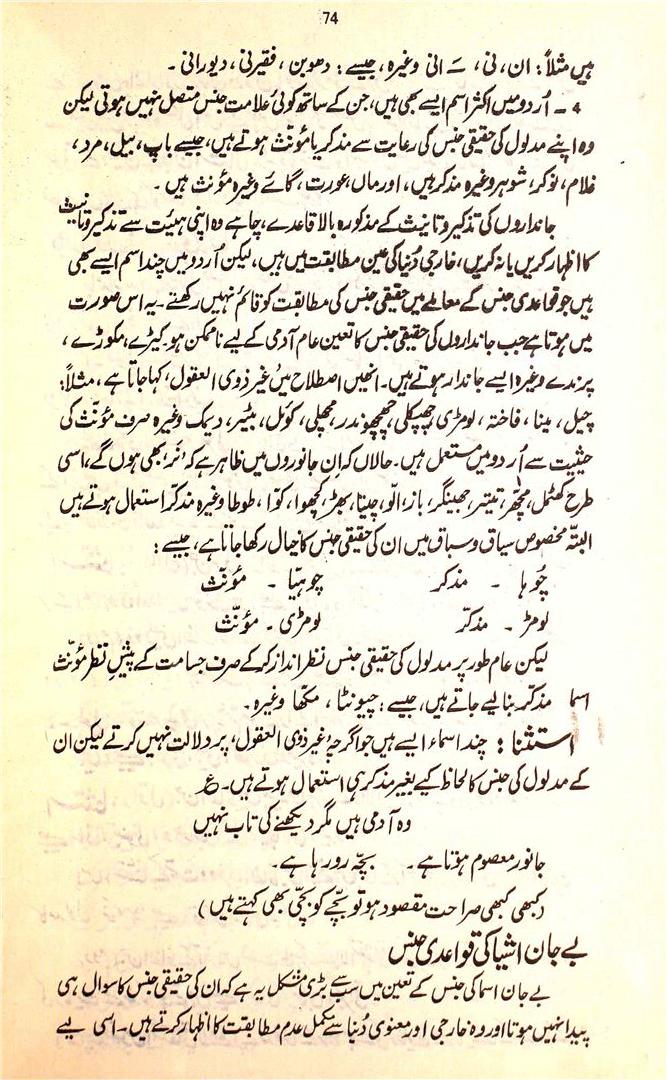 74
ہیں مثلاً: ان، نی، ـَ انی وغیرہ، جیسے: دھوبن، فقیرنی، دیورانی۔
۴۔ اُردو میں اکثر اسم ایسے بھی ہیں، جن کے ساتھ کوئی علامت جنس متصل نہیں ہوتی لیکن
وہ اپنے مدلول کی حقیقی جنس کی رعایت سے مذکر یا مؤنث ہوتے ہیں، جیسے باپ، بیل، مرد،
غلام، نوکر، شوہر وغیرہ مذکر ہیں، اور ماں، عورت، گائے وغیرہ مؤنث ہیں۔
جانداروں کی تذکیر و تانیث کے مذکورہ بالا قاعدے، چاہے وہ اپنی ہیئت سے تذکیر و تانیث
کا اظہار کریں یا نہ کریں، خارجی دُنیا کی عین مطابقت میں ہیں، لیکن اُردو میں چند اسم ایسے بھی
ہیں جو قواعدی جنس کے معاملے میں حقیقی جنس کی مطابقت کو قائم نہیں رکھتے۔ یہ اس صورت
میں ہوتا ہے جب جانداروں کی حقیقی جنس کا تعین عام آدمی کے لیے ناممکن ہو۔ کیڑے، مکوڑے،
پرندے وغیرہ ایسے جاندار ہوتے ہیں۔ انھیں اصطلاح میں 'غیر ذوی العقول' کہا جاتا ہے، مثلاً:
چیل، مینا، فاختہ، لومڑی، چھپکلی، چھچھوندر، مچھلی، کوئل، بٹیر، دیمک وغیرہ صرف مؤنث کی
حیثیت سے اُردو میں مستعمل ہیں۔ حالاں کہ ان جانوروں میں ظاہر ہے کہ 'نر' بھی ہوں گے، اسی
طرح کھٹمل، مچھر، تیتر، جھینگر، باز، الّو، چیتا، بھڑ، کچھوا، کوّا، طوطا وغیرہ مذکر استعمال ہوتے ہیں
البتّہ مخصوص سیاق و سباق میں ان کی حقیقی جنس کا خیال رکھا جاتا ہے، جیسے:
چُوہا ۔ مذکر چوہیا ۔ مؤنّث
لومڑ ۔ مذکّر لومڑی ۔ مؤنّث
لیکن عام طور پر مدلول کی حقیقی جنس نظر انداز کر کے صرف جسامت کے پیشِ نظر مؤنّث
اسما مذکر بنا لیے جاتے ہیں، جیسے: چیونٹا، مکھا وغیرہ۔
استثنا: چند اسماء ایسے ہیں جو اگرچہ 'غیر ذوی العقول' پر دلالت نہیں کرتے لیکن ان
کے مدلول کی جنس کا لحاظ کیے بغیر مذکر ہی استعمال ہوتے ہیں۔ ع
وہ آدمی ہیں مگر دیکھنے کی تاب نہیں
جانور معصوم ہوتا ہے۔ بچّہ رو رہا ہے۔
(کبھی کبھی صراحت مقصود ہو تو بچّے کو بچّی بھی کہتے ہیں)
بے جان اشیا کی قواعدی جنس
بے جان اسما کی جنس کے تعین میں سب سے بڑی مشکل یہ ہے کہ ان کی حقیقی جنس کا سوال ہی
پیدا نہیں ہوتا اور وہ خارجی اور معنوی دُنیا سے مکمل عدم مطابقت کا اظہار کرتے ہیں۔ اسی لیے